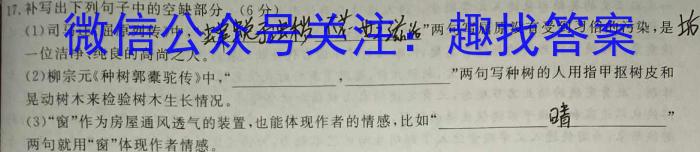 17.补写出下列句子中的空缺部分。(6分)
微信公众号关注：趣找答案
(1)司 ”两句 原 有受 俗的污染,是
一位洁净、纯良的高尚之人。
(2)柳宗元《种树郭橐驼传》中,“____,____”两句写种树的人用指甲抠树皮和
晃动树木来检验树木生长情况。
(3)“窗”作为房屋通风透气的装置,也能体现作者的情感,比如“____晴____”
两句就用“窗”体现作者情感。